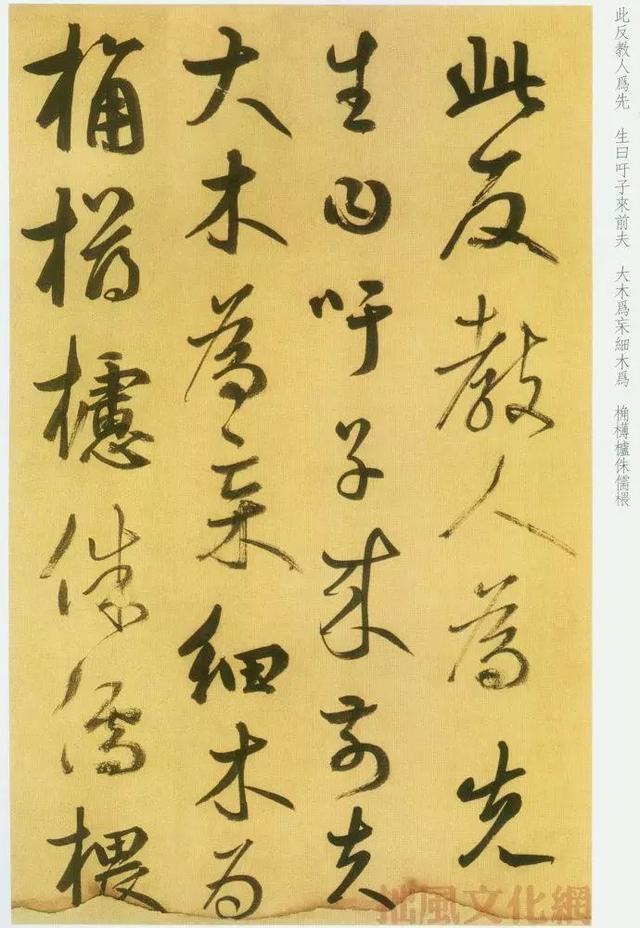 此反教人為先
生曰吁子來前夫
大木為杗細木為
桷欂櫨侏儒椳
此反教人爲先 生曰吁子來前夫 大木爲杗細木爲 桷欂櫨侏儒椳
拙風文化網